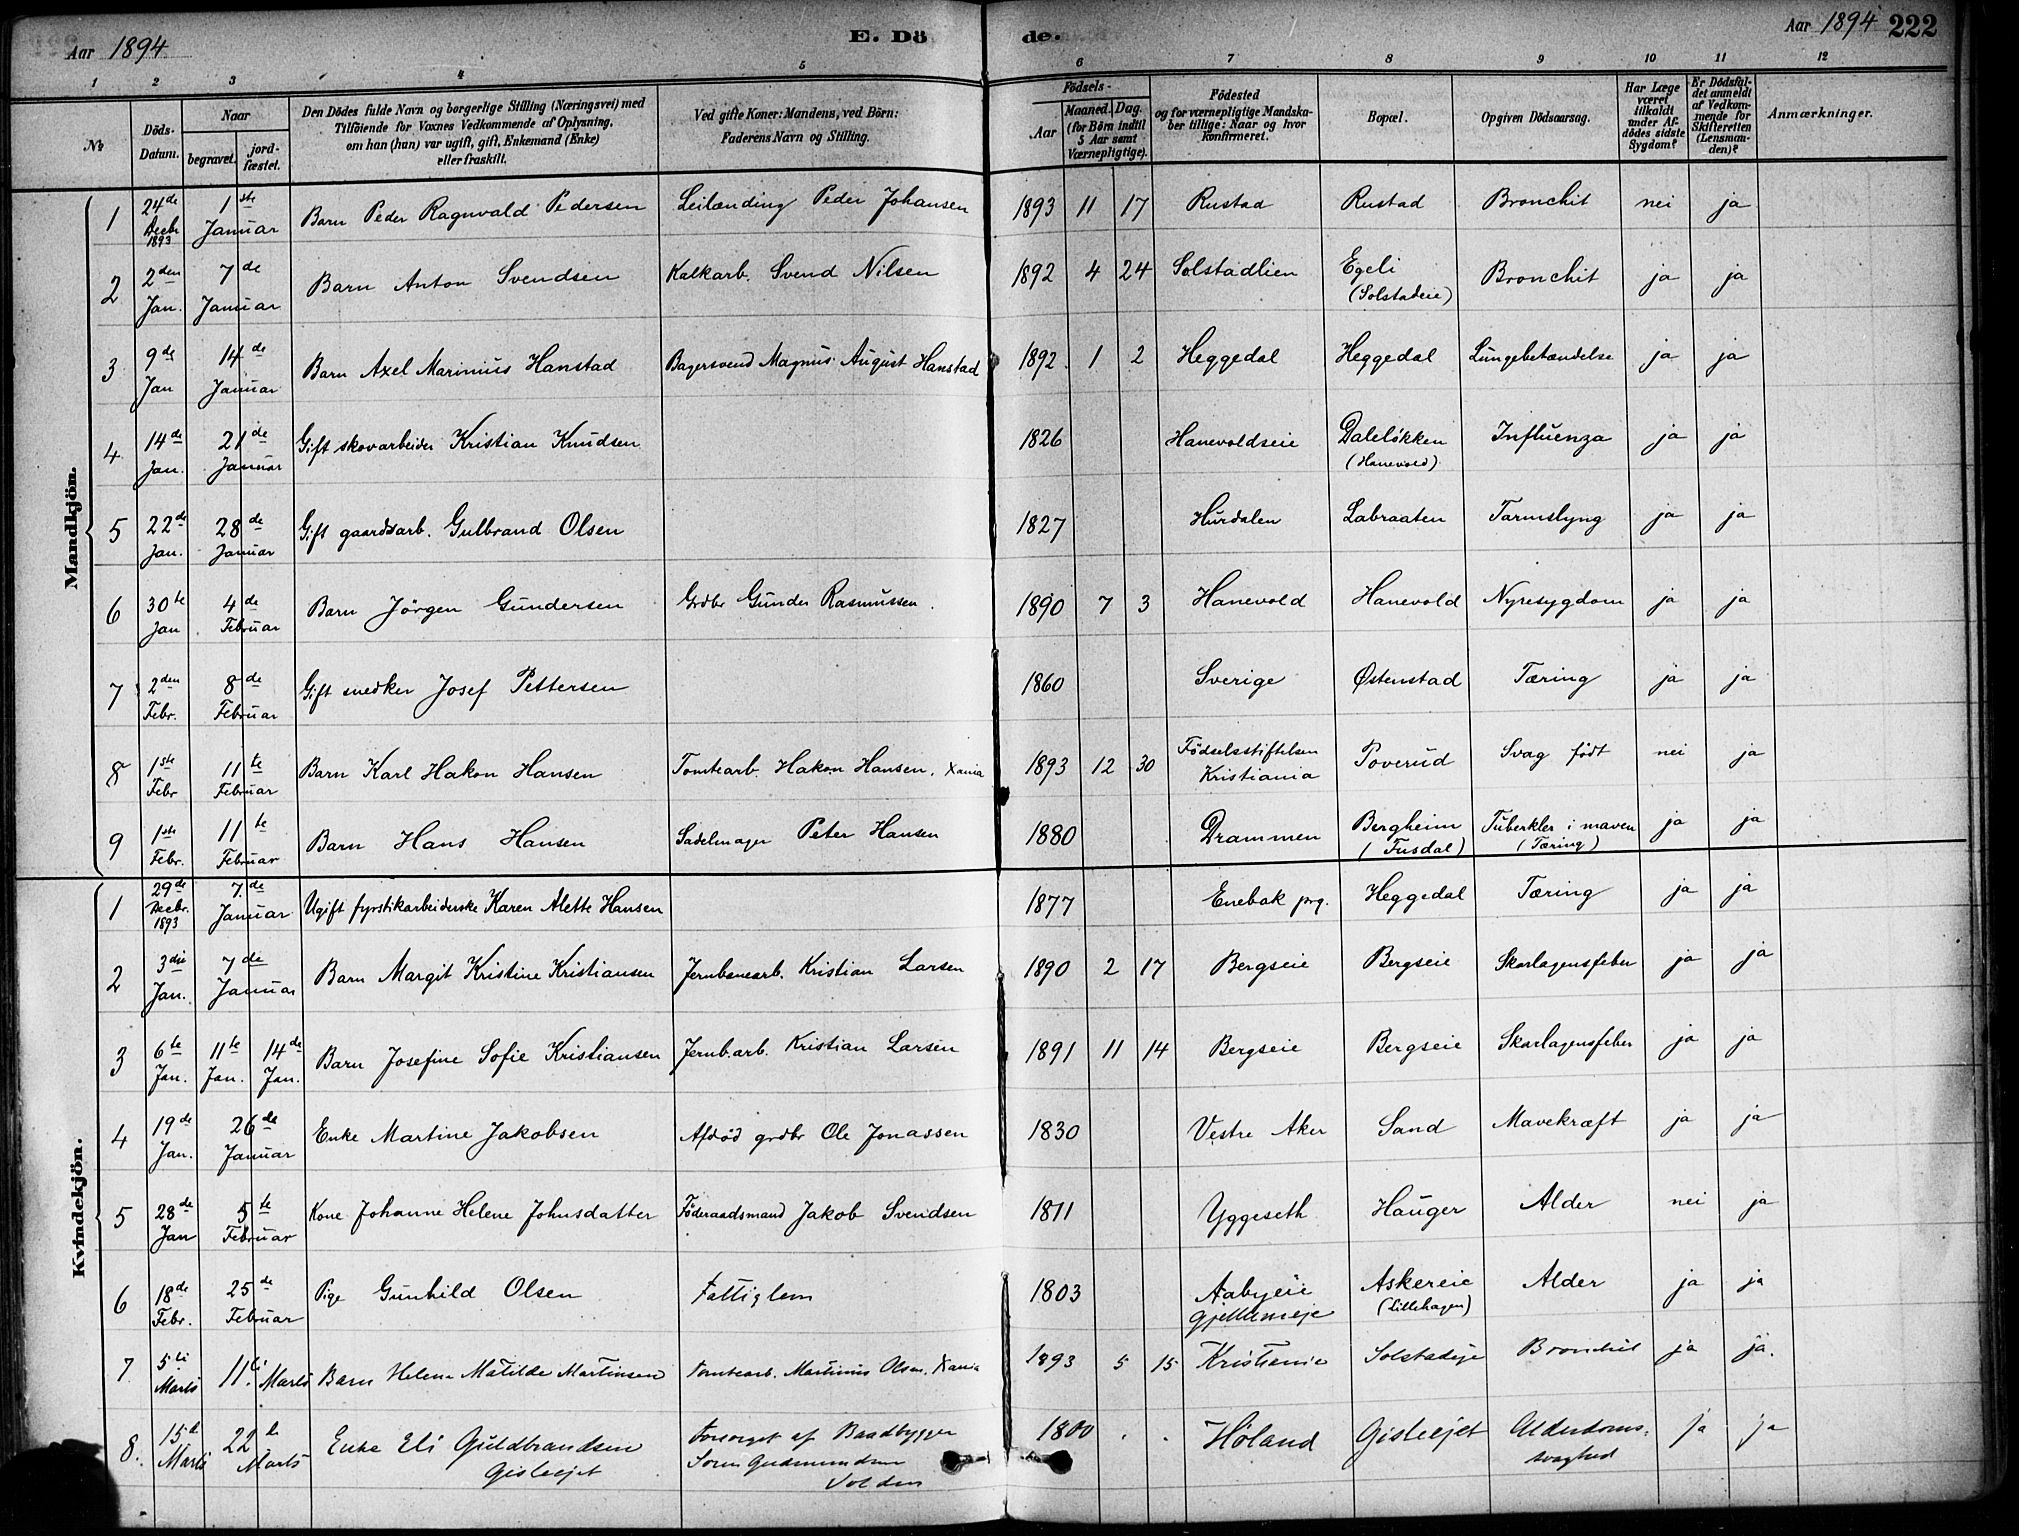 Aar 1894 E. Dö de. Aar 1894 222
1 2 3 4 5 6 7 8 9 10 11 12
No | Döds-Datum. | Naar begravet. | jord-fæstet. | Den Dödes fulde Navn og borgerlige Stilling (Næringsvei) med Tilföiende for Voxnes Vedkommende af Oplysning, om han (hun) var ugift, gift, Enkemand (Enke) eller fraskilt. | Ved gifte Koner: Mandens, ved Börn: Faderens Navn og Stilling. | Födsels- Aar | Maaned. | Dag. (for Börn indtil 5 Aar samt Værnepligtige). | Födested og for værnepligtige Mandskaber tillige: Naar og hvor Konfirmeret. | Bopæl. | Opgiven Dödsaarsag. | Har Læge været tilkaldt under Afdödes sidste Sygdom? | Er Dödsfaldet anmeldt af Vedkommende for Skifteretten (Lensmanden)? | Anmærkninger.
Mandkjön.
1 | 24de Decbr 1893 | 1ste Januar | Barn Peder Ragnvald Pedersen | Leilænding Peder Johansen | 1893 | 11 | 17 | Rustad | Rustad | Bronchit | nei | ja
2 | 2den Jan. | 7de Januar | Barn Anton Svendsen | Kalkarb. Svend Nilsen | 1892 | 4 | 24 | Solstadlien | Egeli (Solstadeie) | Bronchit | ja | ja
3 | 9de Jan | 14de Januar | Barn Axel Marinius Hanstad | Bagersvend Magnus August Hanstad | 1892 | 1 | 2 | Heggedal | Heggedal | Lungebetændelse | ja | ja
4 | 14de Jan. | 21de Januar | Gift skovarbeider Kristian Knudsen | 1826 | Hanevoldseie | Daleløkken (Hanevold) | Influenza | ja | ja
5 | 22de Jan. | 28de Januar | Gift gaardsarb. Gulbrand Olsen | 1827 | Hurdalen | Labraaten | Tarmslyng | ja | ja
6 | 30te Jan | 4de Februar | Barn Jörgen Gundersen | Grdbr Gunder Rasmussen. | 1890 | 7 | 3 | Hanevold | Hanevold | Nyresygdom | ja | ja
7 | 2den Febr. | 8de Februar | Gift snedker Josef Pettersen | 1860 | Sverige | Østenstad | Tæring | ja | ja
8 | 1ste Febr | 11te Februar | Barn Karl Hakon Hansen | Tomtearb. Hakon Hansen, Xania | 1893 | 12 | 30 | Födselsstiftelsen Kristiania | Poverud | Svag født | nei | ja
9 | 1ste Febr. | 11te Februar | Barn Hans Hansen | Sadelmager Peter Hansen | 1880 | Drammen | Bergheim (Fusdal) | Tuberkler i maven (Tæring) | ja | ja
Kvindekjön.
1 | 29de Decbr. 1893 | 7de Januar | Ugift fyrstikarbeiderske Karen Alette Hansen | 1877 | Enebak prg. | Heggedal | Tæring | ja | ja
2 | 3die Jan. | 7de Januar | Barn Margit Kristine Kristiansen | Jernbanearb. Kristian Larsen | 1890 | 2 | 17 | Bergseie | Bergseie | Skarlagensfeber | ja | ja
3 | 6te Jan. | 11te Jan. | 14de Jan. | Barn Josefine Sofie Kristiansen | Jernb.arb. Kristian Larsen | 1891 | 11 | 14 | Bergseie | Bergseie | Skarlagensfeber | ja | ja
4 | 19de Jan. | 26de Januar | Enke Martine Jakobsen | Afdød grdbr Ole Jonassen | 1830 | Vestre Aker | Sand | Mavekræft | ja | ja
5 | 28de Jan | 5te Februar | Kone Johanne Helene Johnsdatter | Föderaadsmand Jakob Svendsen | 1811 | Yggeseth | Hauger | Alder | nei | ja
6 | 18de Febr. | 25de Februar | Pige Gunhild Olsen | Fattiglem | 1803 | Aabyeie Gjellumeje | Askereie (Lillehagen) | Alder | ja | ja
7 | 5te Marts | 11te Marts | Barn Helene Matilde Martinsen | Tomtearb. Martinius Olsen. Xania | 1893 | 5 | 15 | Kristiania | Solstadeje | Bronchit | ja | ja.
8. | 15de Marts | 22de Marts | Enke Eli Guldbrandsen Gisleejet | Forsørget af Baadbygger Søren Gudmundsen Volden | 1800 | Høland | Gisleejet | Alderdoms-svaghed | ja | ja